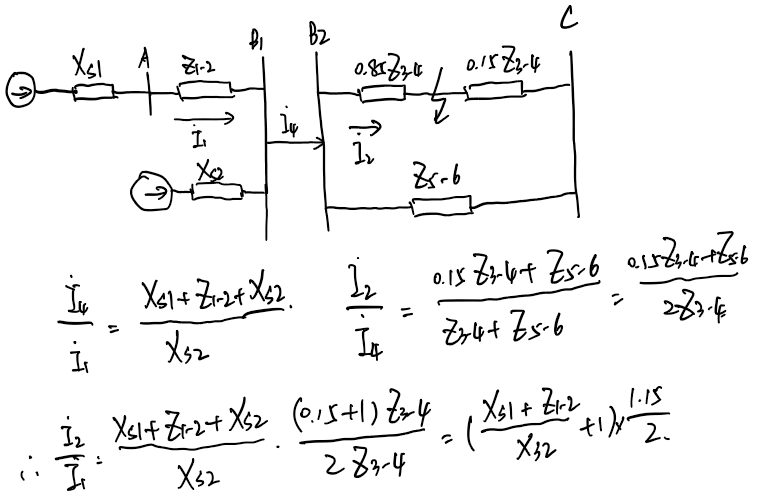 C
B1 B2
Xs1 A Z1-2 0.85Z3-4 0.15Z3-4
İ1 İ4 İ2
Xs2 Z5-6
İ4/İ1 = (Xs1+Z1-2+Xs2)/Xs2. İ2/İ4 = (0.15Z3-4+Z5-6)/(Z3-4+Z5-6) = (0.15Z3-4+Z5-6)/(2Z3-4)
∴ İ2/İ1 = (Xs1+Z1-2+Xs2)/Xs2 · ((0.15+1)Z3-4)/(2Z3-4) = ((Xs1+Z1-2)/Xs2 +1)×1.15/2.